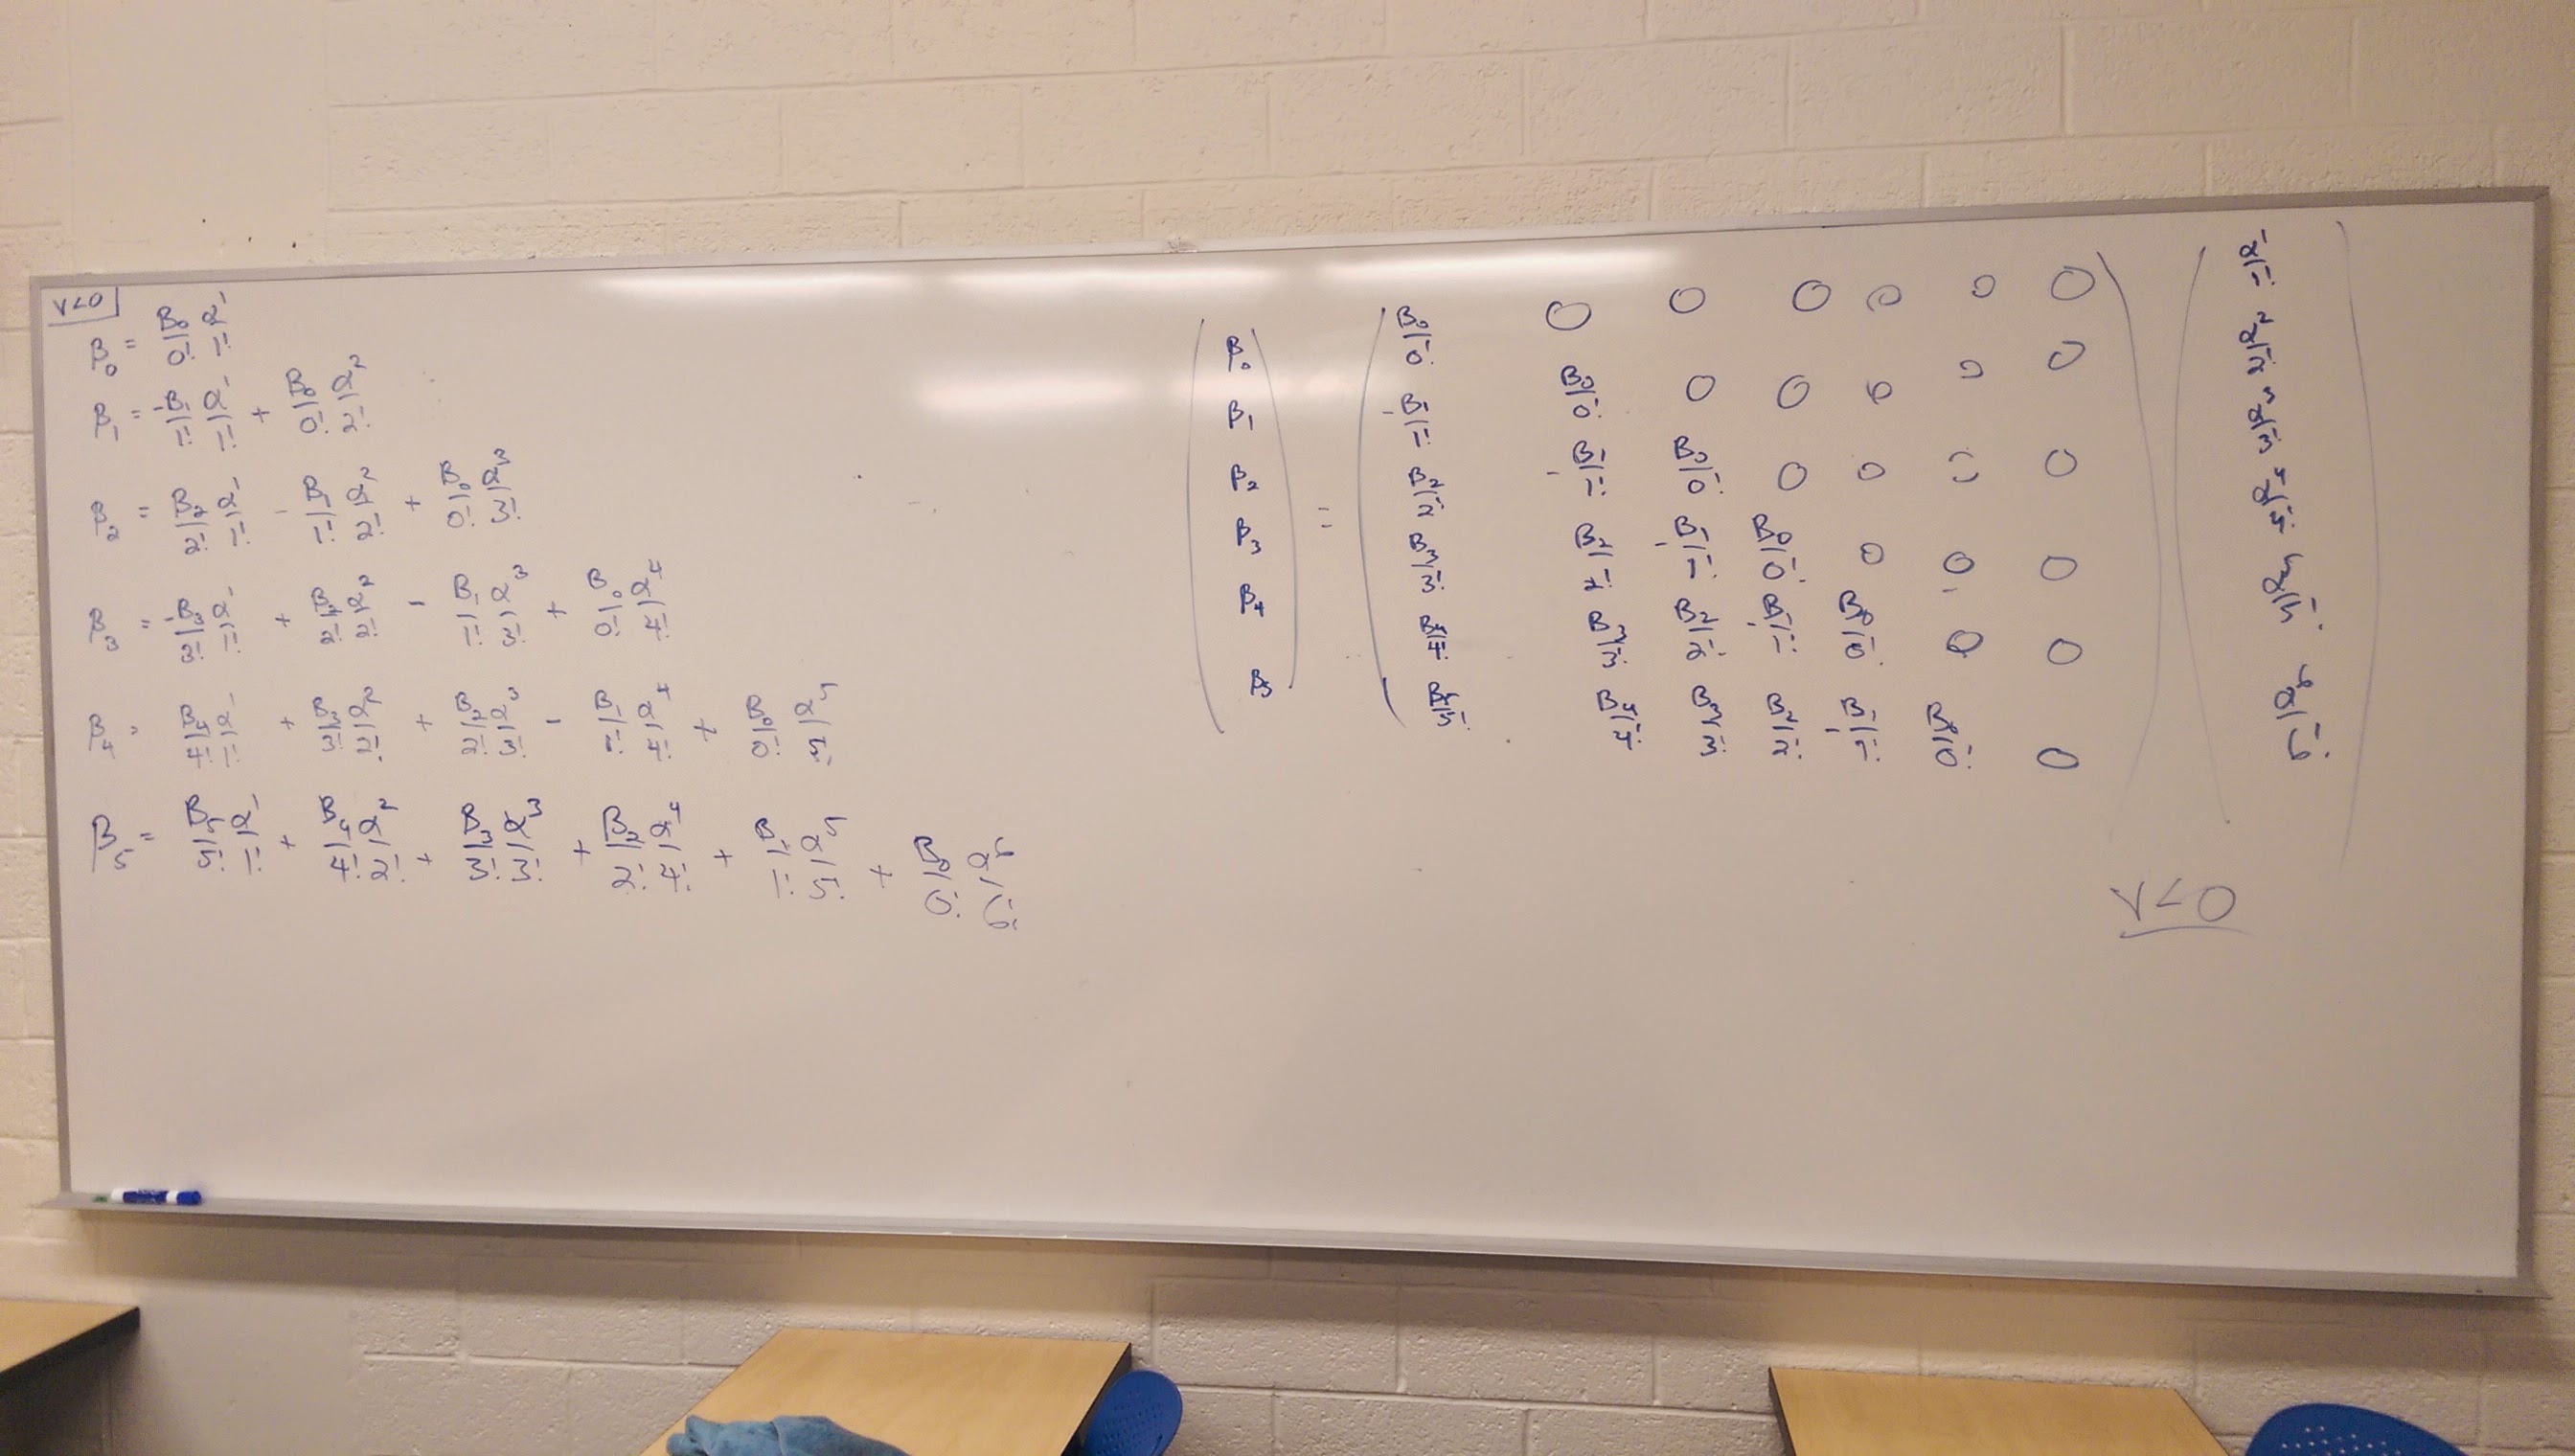 V<0
β₀ = B₀/0! α₁/1!
β₁ = B₁/1! α₁/1! + B₀/0! α₂/2!
β₂ = B₂/2! α₁/1! - B₁/1! α₂/2! + B₀/0! α₃/3!
β₃ = B₃/3! α₁/1! + B₂/2! α₂/2! - B₁/1! α₃/3! + B₀/0! α₄/4!
β₄ = B₄/4! α₁/1! + B₃/3! α₂/2! + B₂/2! α₃/3! - B₁/1! α₄/4! + B₀/0! α₅/5!
β₅ = B₅/5! α₁/1! + B₄/4! α₂/2! + B₃/3! α₃/3! + B₂/2! α₄/4! + B₁/1! α₅/5! + B₀/0! α₆/6!
( β₀ β₁ β₂ β₃ β₄ β₅ ) =
B₀/0! 0 0 0 0 0 0
B₁/1! B₀/0! 0 0 0 0 0
B₂/2! B₁/1! B₀/0! 0 0 0 0
B₃/3! B₂/2! B₁/1! B₀/0! 0 0 0
B₄/4! B₃/3! B₂/2! B₁/1! B₀/0! 0 0
B₅/5! B₄/4! B₃/3! B₂/2! B₁/1! B₀/0! 0
α₁/1! α₂/2! α₃/3! α₄/4! α₅/5! α₆/6!
V<0